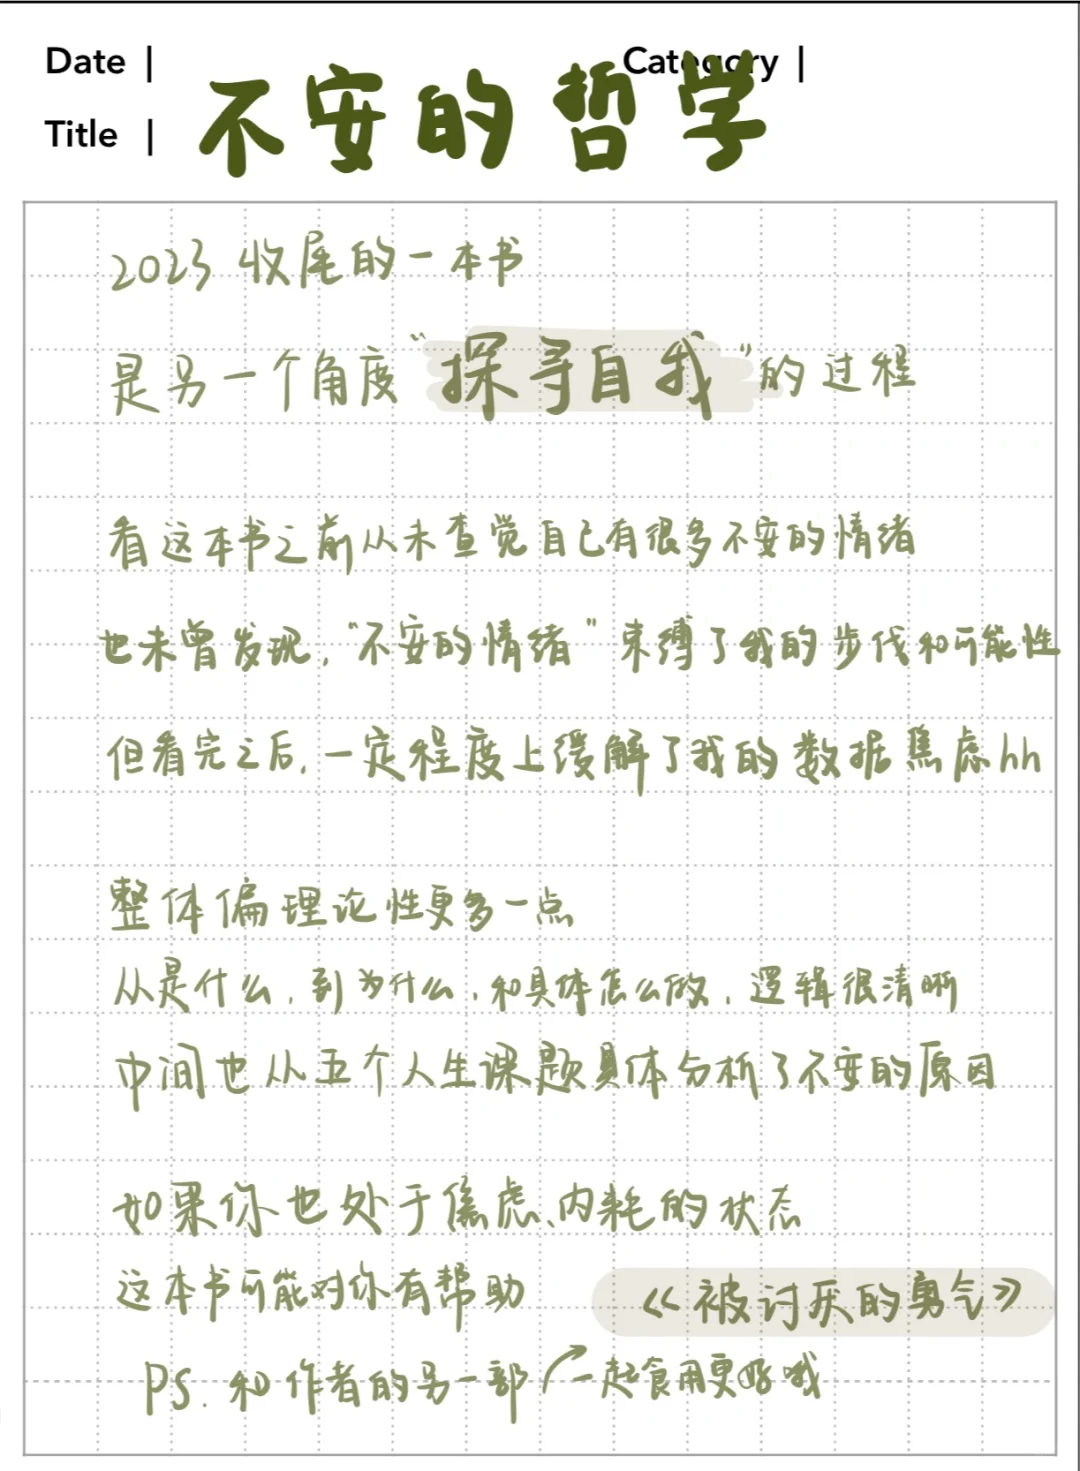 Date |
Category |
Title | 不安的哲学
2023 收尾的一本书
是另一个角度“探寻自我”的过程
看这本书之前从未查觉自己有很多不安的情绪
也未曾发现,“不安的情绪”束缚了我的步伐和可能性
但看完之后,一定程度上缓解了我的数据焦虑hh
整体偏理论性更多一点
从是什么,到为什么,和具体怎么做,逻辑很清晰
中间也从五个人生课题具体分析了不安的原因
如果你也处于焦虑、内耗的状态
这本书可能对你有帮助
《被讨厌的勇气》
PS. 和作者的另一部 一起食用更好哦